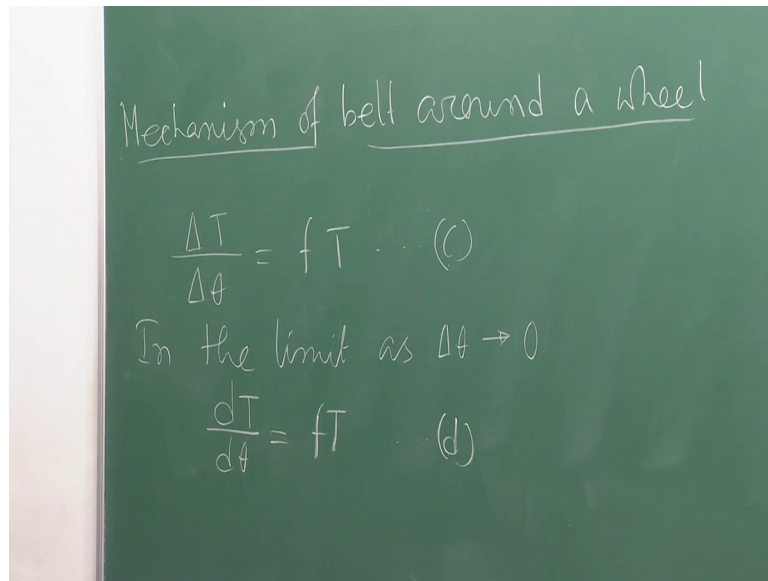 Mechanism of belt around a wheel
ΔT/Δθ = fT ---- (c)
In the limit as Δθ → 0
dT/dθ = fT ---- (d)